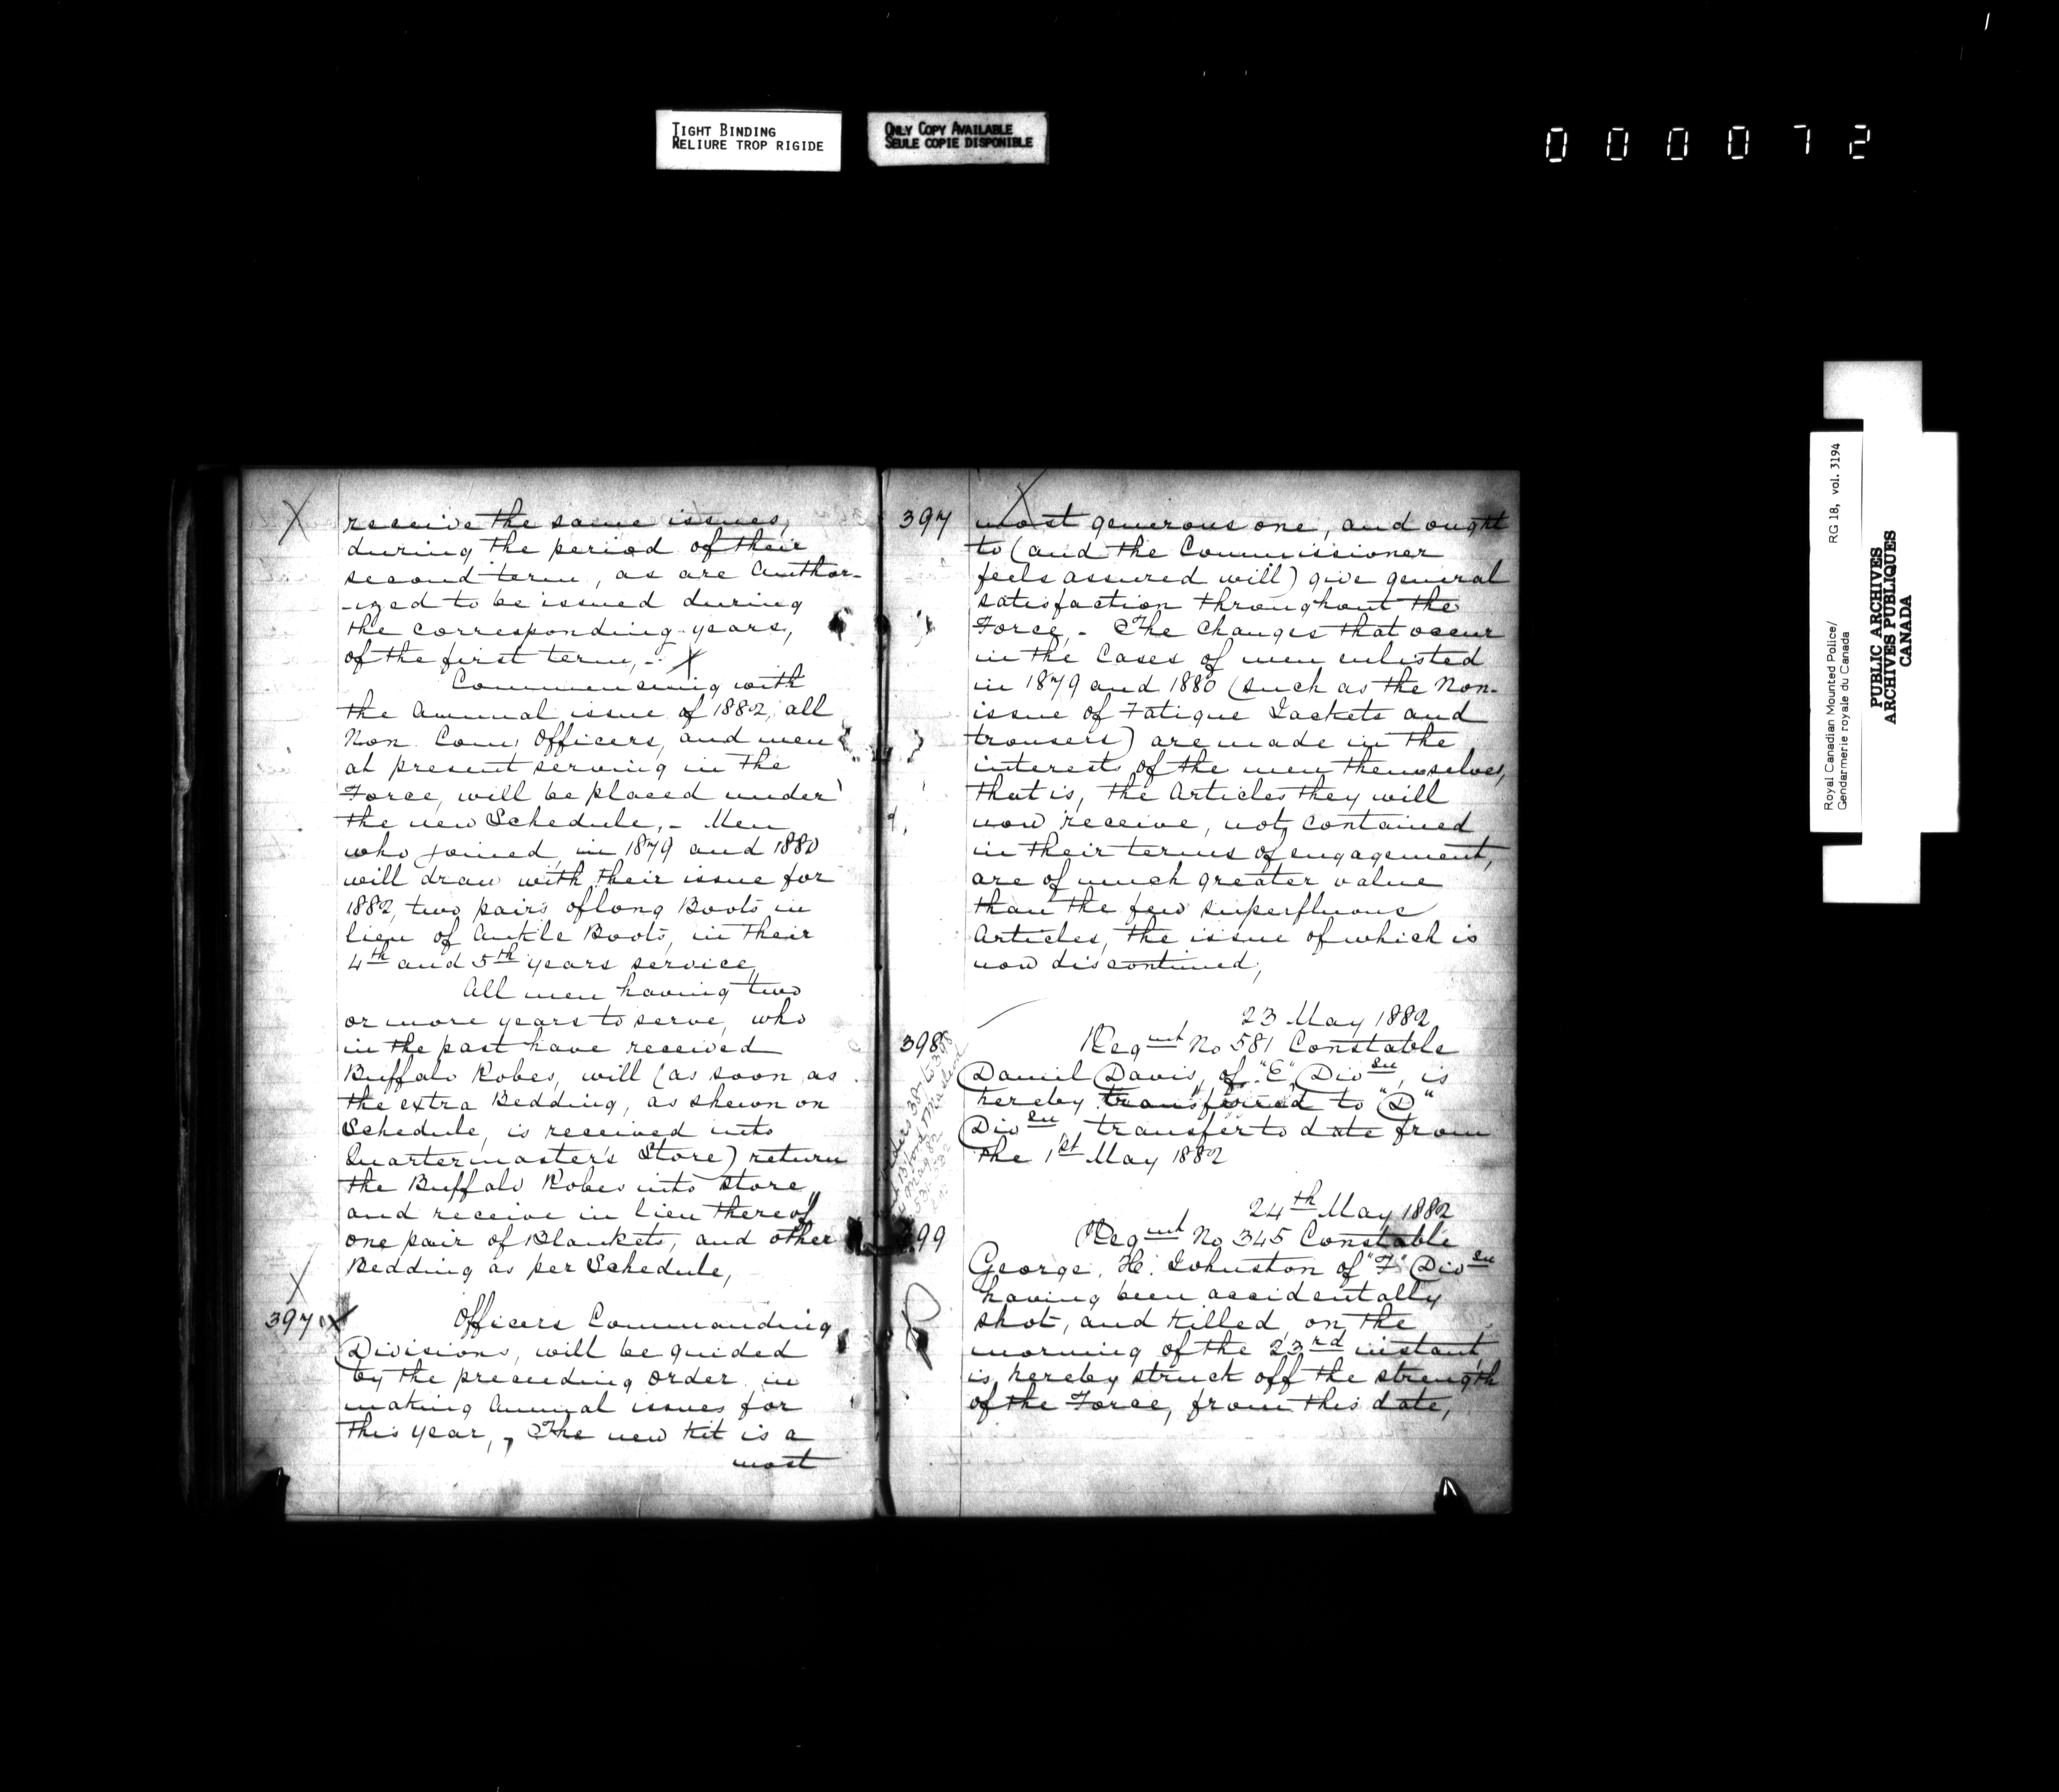 TIGHT BINDING
RELIURE TROP RIGIDE
ONLY COPY AVAILABLE
SEULE COPIE DISPONIBLE
000072
receive the same issues,
during the period of their
second term, as are Author-
-ized to be issued during
the corresponding years,
of the first term,-
Commencing with
the Annual issue of 1882, all
Non. Com. Officers, and men
at present serving in the
Force, will be placed under
the new Schedule,- Men
who joined in 1879 and 1880
will draw with their issue for
1882, two pairs of long Boots in
lieu of Ankle Boots, in their
4th and 5th years service,
All men having two
or more years to serve, who
in the past have received
Buffalo Robes, will (as soon as
the extra Bedding, as shewn on
Schedule, is received into
Quartermaster's Store) return
the Buffalo Robes into store,
and receive in lieu thereof
one pair of Blankets, and other
Bedding as per Schedule,
397 X Officers Commanding
Divisions, will be guided
by the preceeding order in
making Annual issues for
this year,, The new Kit is a
most
397 most generous one, and ought
to (and the Commissioner
feels assured will) give general
satisfaction throughout the
Force,- The changes that occur
in the Cases of men enlisted
in 1879 and 1880 (such as the Non-
issue of Fatigue Jackets and
trousers) are made in the
interests of the men themselves,
that is, the Articles they will
now receive, not contained
in their terms of engagement,
are of much greater value
than the few superfluous
Articles, the issue of which is
now discontinued,
23 May 1882
398 Regmt No 581 Constable
Daniel Davis, of "E" Divsn, is
hereby transferred to "D"
Divsn, transfer to date from
the 1st May 1882
24th May 1882
399 Regmt No 345 Constable
George. H. Johnston of "F" Divsn
having been accidentally
shot, and killed, on the
morning of the 23rd instant
is hereby struck off the strength
of the Force, from this date,
Royal Canadian Mounted Police/ RG 18, vol. 3194
Gendarmerie royale du Canada
PUBLIC ARCHIVES
ARCHIVES PUBLIQUES
CANADA